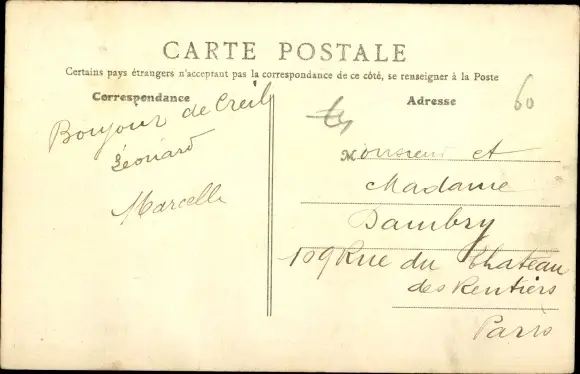 CARTE POSTALE
Certains pays étrangers n'acceptant pas la correspondance de ce côté, se renseigner à la Poste
Correspondance
Bonjour de Creil
Léonard
Marcelle
Adresse
60
Monsieur et
Madame
Dambry
109 Rue du Chateau
des Rentiers
Paris